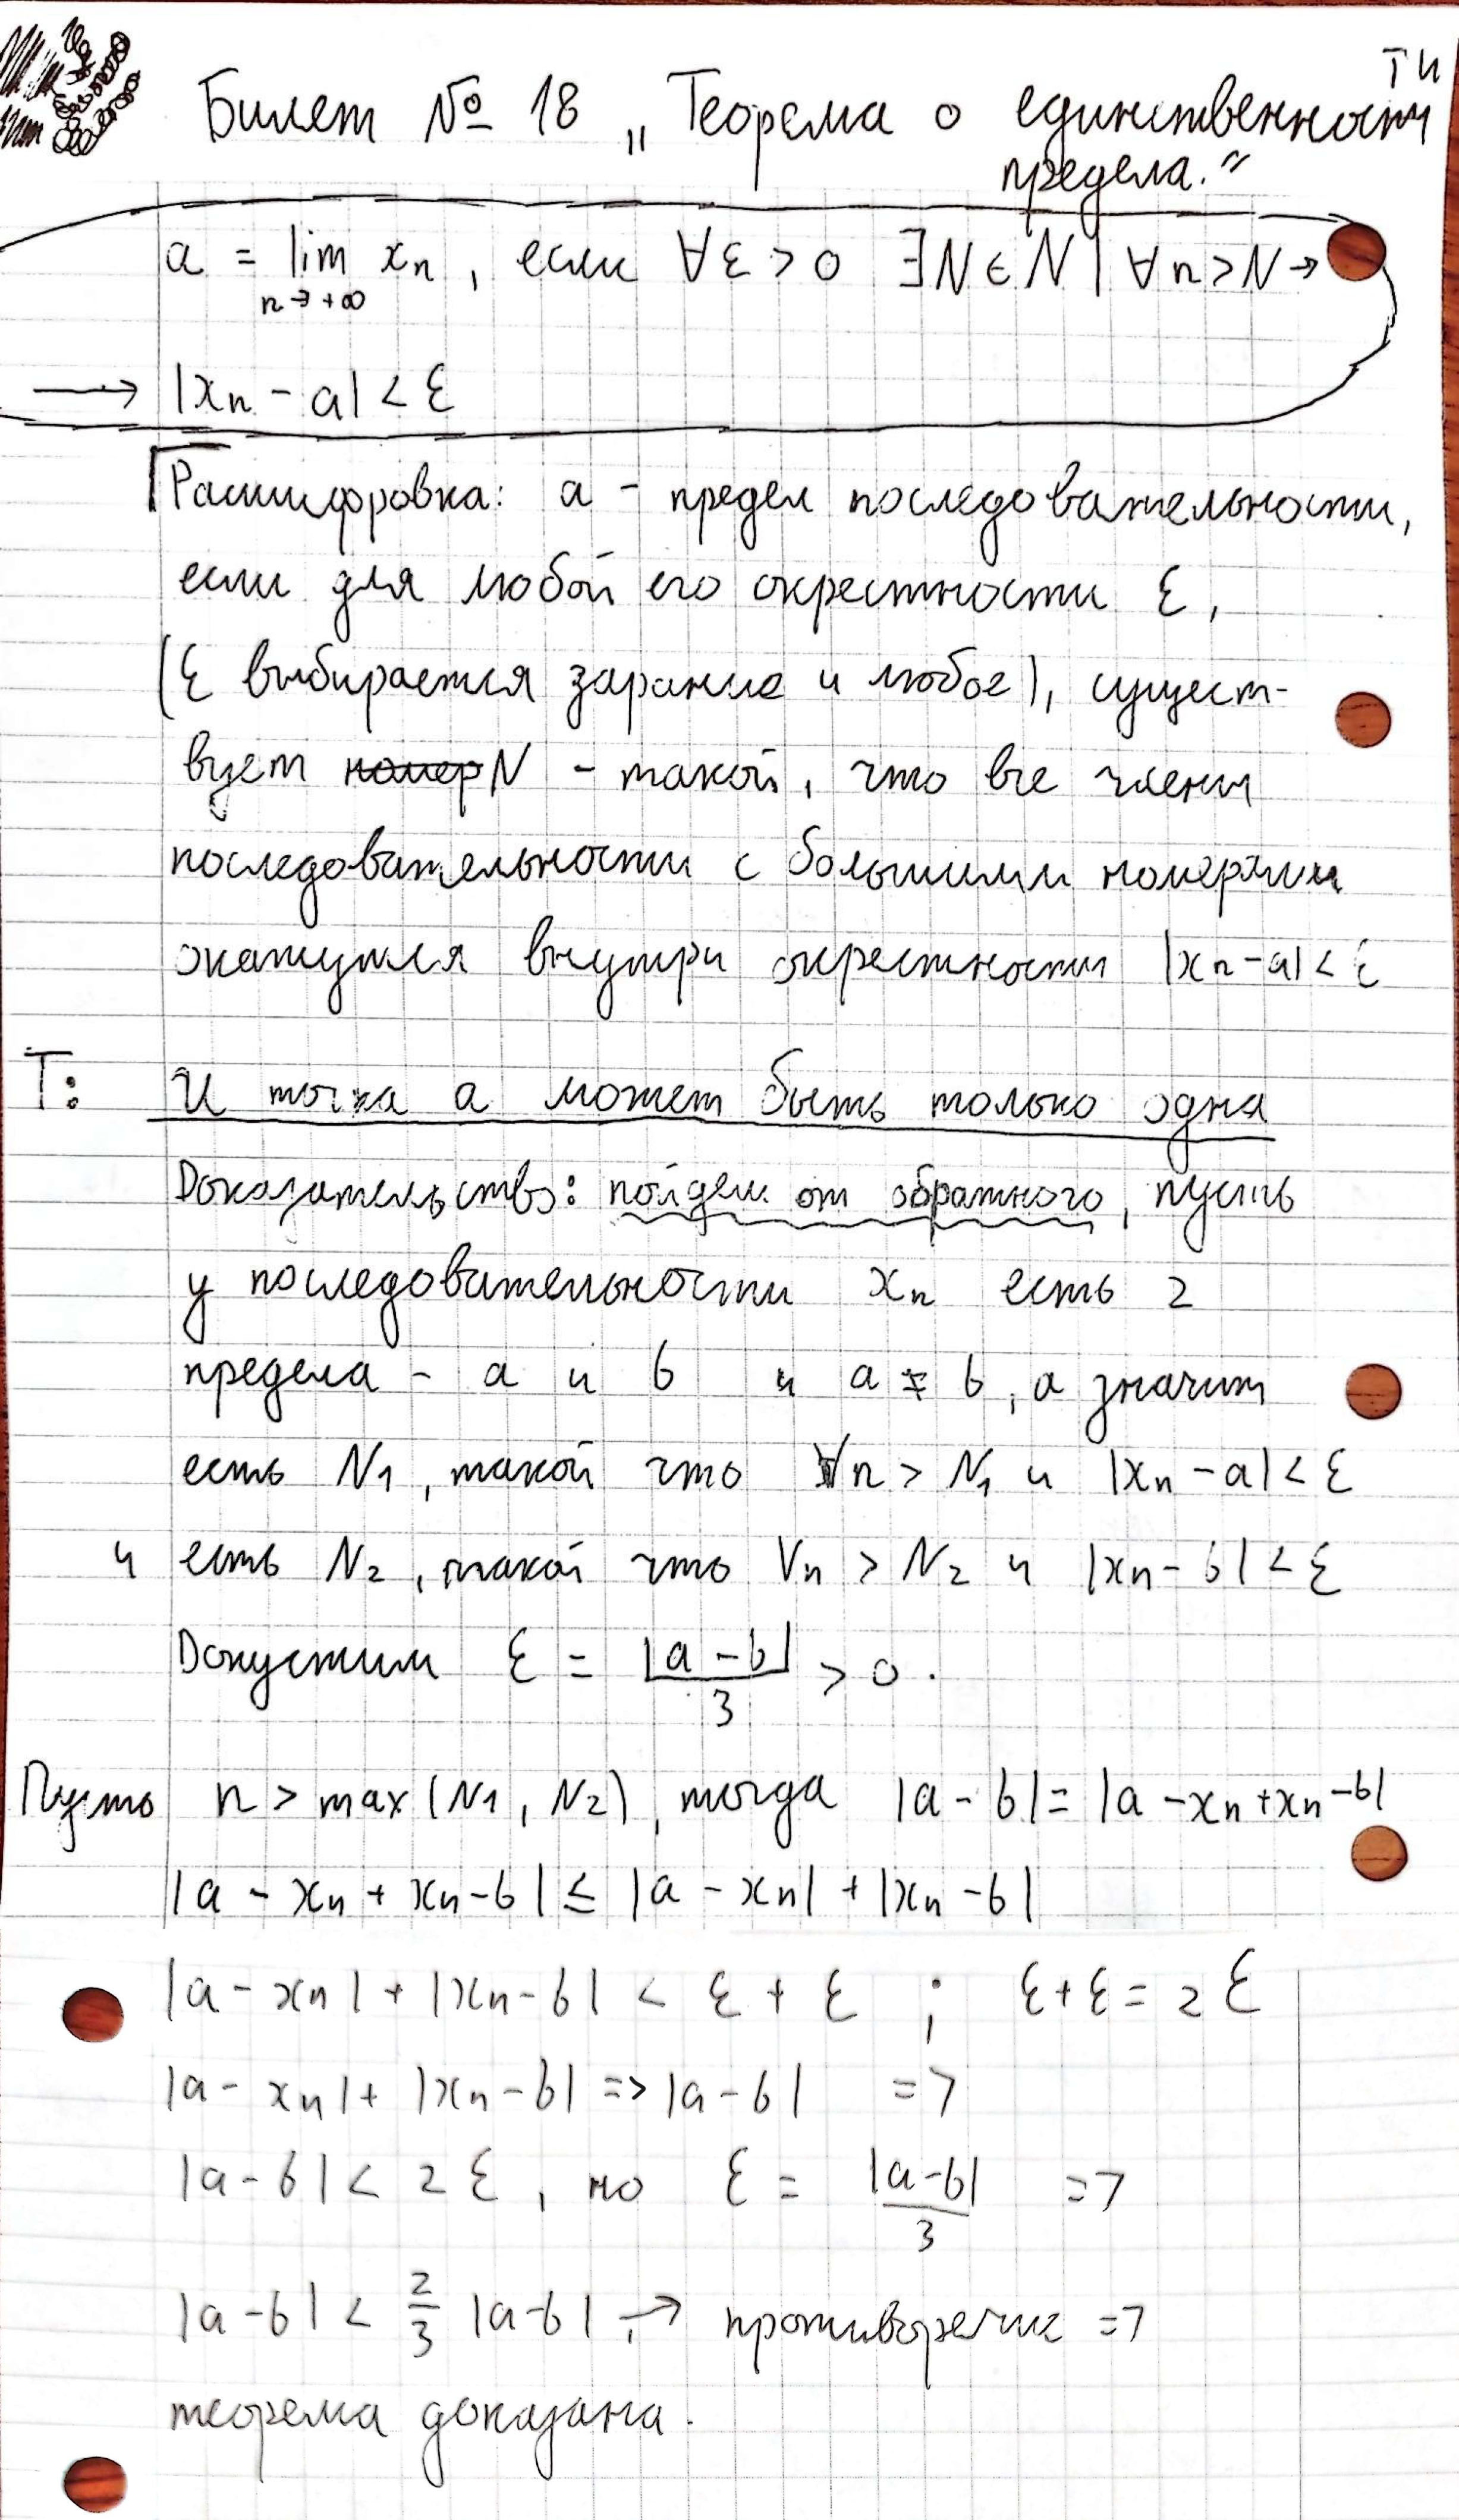 ТИ
Билет № 18 „Теорема о единственности
предела.“
a = lim xₙ, если ∀ε > 0 ∃N ∈ N | ∀n > N →
n → +∞
→ |xₙ - a| < ε
Расшифровка: a - предел последовательности,
если для любой его окрестности ε,
(ε выбирается зарание и любое), сущест-
вует номер N - такой, что все члены
последовательности с большими номерами
окажутся внутри окрестности |xₙ - a| < ε
Т: И точка a может быть только одна
Доказательство: пойдем от обратного, пусть
у последовательности xₙ есть 2
предела - a и b и a ≠ b, а значит
есть N₁, такой что ∀n > N₁ и |xₙ - a| < ε
и есть N₂, такой что ∀n > N₂ и |xₙ - b| < ε
Допустим ε = |a - b| / 3 > 0.
Пусть n > max(N₁, N₂), тогда |a - b| = |a - xₙ + xₙ - b|
|a - xₙ + xₙ - b| ≤ |a - xₙ| + |xₙ - b|
|a - xₙ| + |xₙ - b| < ε + ε ; ε + ε = 2ε
|a - xₙ| + |xₙ - b| => |a - b| =>
|a - b| < 2ε, но ε = |a - b| / 3 =>
|a - b| < 2/3 |a - b| → противоречие =>
теорема доказана.